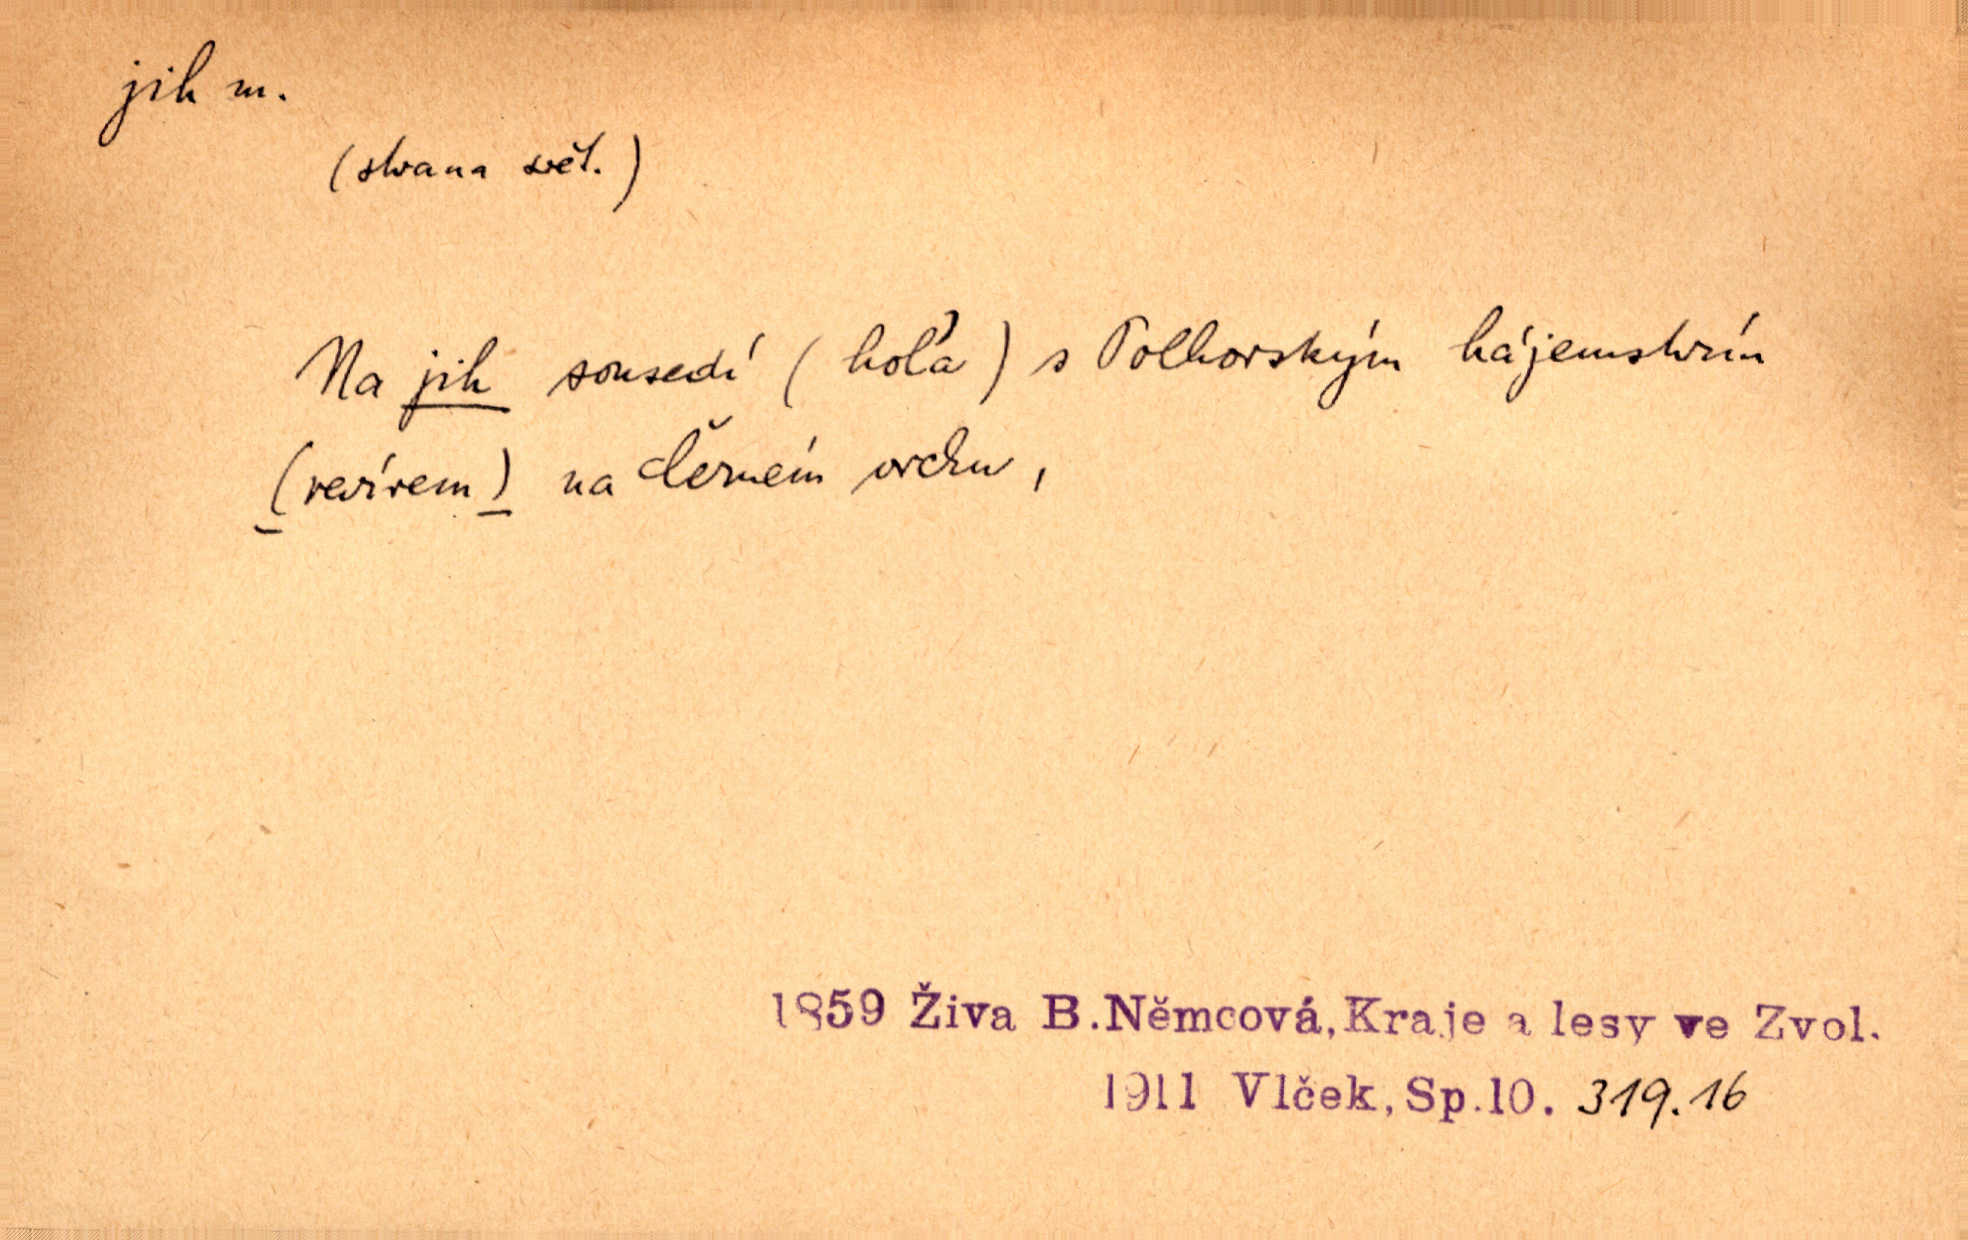 jih m.
(strana svět.)
Na jih sousedí (hoľa) s Polhorským hájemstvím
(revírem) na Černém vrchu,
1859 Živa B.Němcová, Kraje a lesy ve Zvol.
1911 Vlček, Sp.10. 319.16